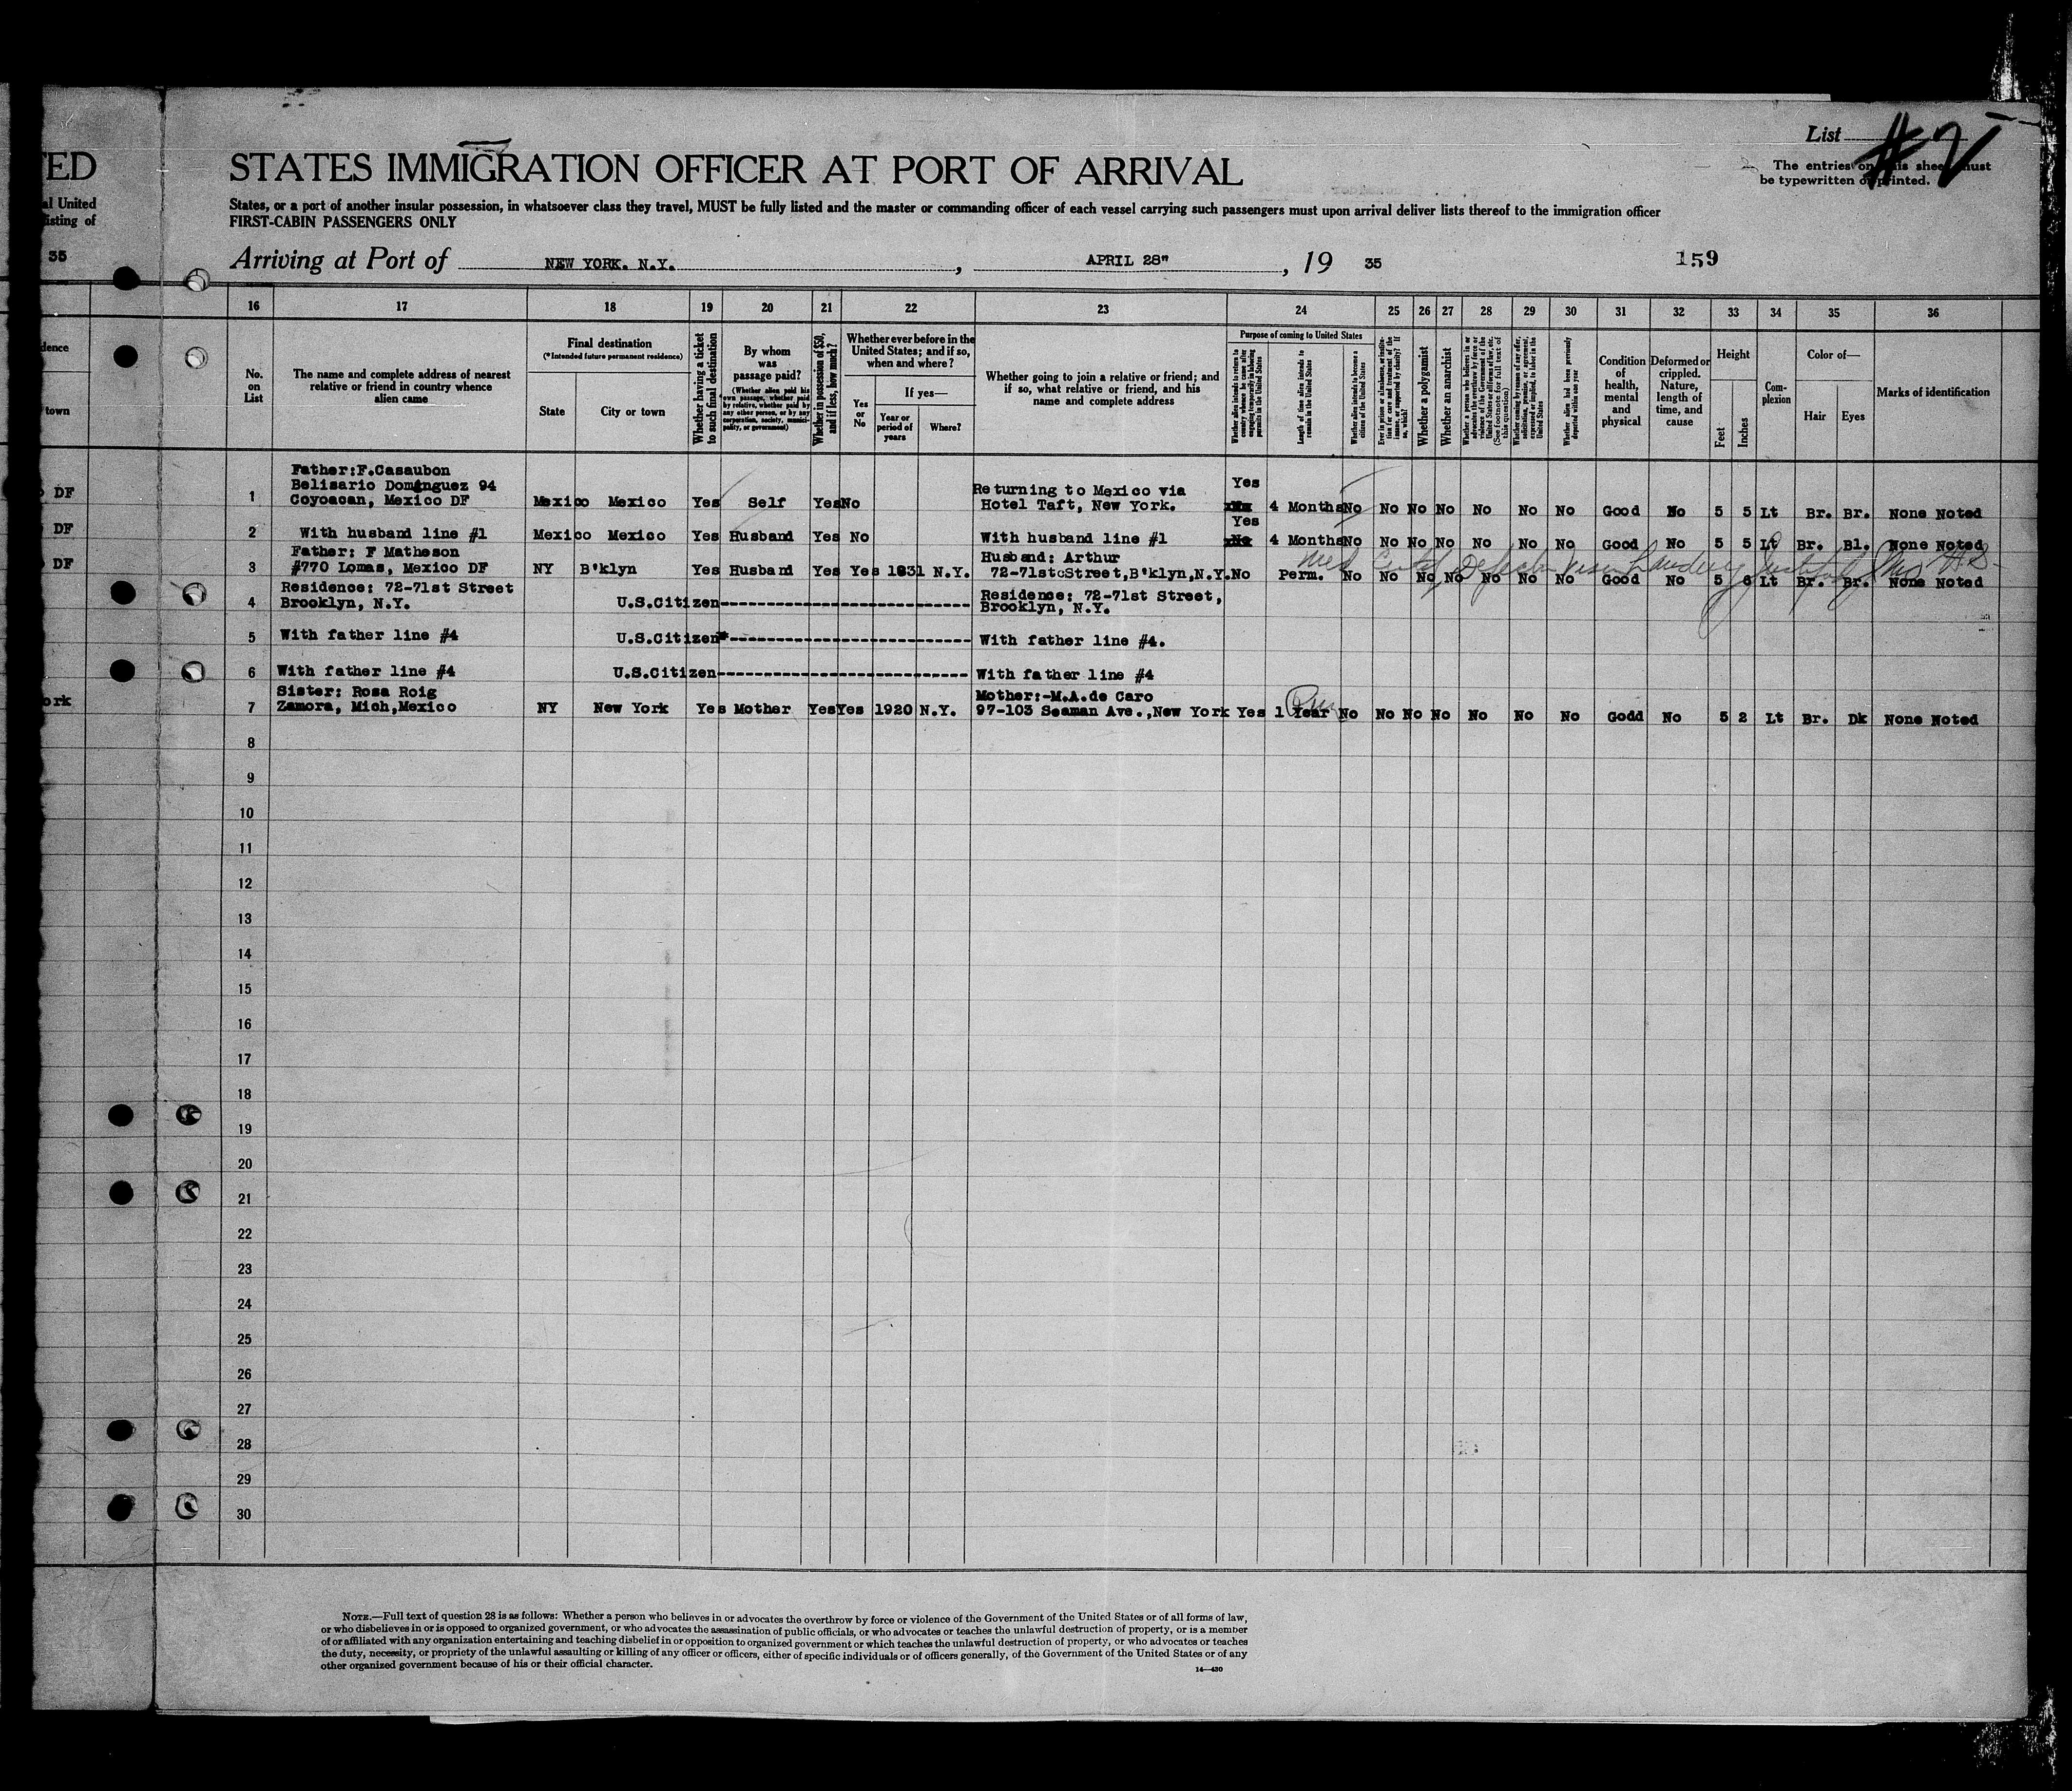 ED
al United
listing of
35
dence
town
DF
DF
DF
ork
List #2
The entries on this sheet must
be typewritten or printed.
STATES IMMIGRATION OFFICER AT PORT OF ARRIVAL
States, or a port of another insular possession, in whatsoever class they travel, MUST be fully listed and the master or commanding officer of each vessel carrying such passengers must upon arrival deliver lists thereof to the immigration officer
FIRST-CABIN PASSENGERS ONLY
Arriving at Port of NEW YORK. N.Y. , APRIL 28" , 19 35 159
16 17 18 19 20 21 22 23 24 25 26 27 28 29 30 31 32 33 34 35 36
No.
on
List
The name and complete address of nearest
relative or friend in country whence
alien came
Final destination
(*Intended future permanent residence)
State
City or town
Whether having a ticket
to such final destination
By whom
was
passage paid?
(Whether alien paid his
own passage, whether paid
by relative, whether paid by
any other person, or by any
corporation, society, munici-
pality, or government)
Whether in possession of $50,
and if less, how much?
Whether ever before in the
United States; and if so,
when and where?
Yes
or
No
If yes—
Year or
period of
years
Where?
Whether going to join a relative or friend; and
if so, what relative or friend, and his
name and complete address
Purpose of coming to United States
Whether alien intends to return to
country whence he came after
engaging temporarily in laboring
pursuits in the United States
Length of time alien intends to
remain in the United States
Whether alien intends to become a
citizen of the United States
Ever in prison or almshouse, or institu-
tion for care and treatment of the
insane, or supported by charity? If
so, which?
Whether a polygamist
Whether an anarchist
Whether a person who believes in or
advocates the overthrow by force or
violence of the Government of the
United States or all forms of law, etc.
(See footnote for full text of
this question)
Whether coming by reason of any offer,
solicitation, promise, or agreement,
expressed or implied, to labor in the
United States
Whether alien had been previously
deported within one year
Condition
of
health,
mental
and
physical
Deformed or
crippled.
Nature,
length of
time, and
cause
Height
Feet
Inches
Com-
plexion
Color of—
Hair
Eyes
Marks of identification
Father:F.Casaubon
Belisario Dominguez 94
1 Coyoacan, Mexico DF Mexico Mexico Yes Self Yes No Returning to Mexico via
Hotel Taft, New York. Yes 4 Months No No No No No No No Good No 5 5 Lt Br. Br. None Noted
2 With husband line #1 Mexico Mexico Yes Husband Yes No With husband line #1 Yes No 4 Months No No No No No No No Good No 5 5 Lt Br. Bl. None Noted
Father: F Matheson
3 #770 Lomas, Mexico DF NY B'klyn Yes Husband Yes Yes 1931 N.Y. Husband: Arthur
72-71st Street,B'klyn,N.Y. No Perm. No No No No No No No Good No 5 6 Lt Br. Br. None Noted
Residence: 72-71st Street
4 Brooklyn, N.Y. U.S.Citizen------------------------ Residence: 72-71st Street,
Brooklyn, N.Y.
5 With father line #4 U.S.Citizen------------------------ With father line #4.
6 With father line #4 U.S.Citizen------------------------ With father line #4
Sister: Rosa Roig
7 Zamora, Mich,Mexico NY New York Yes Mother Yes Yes 1920 N.Y. Mother:-M.A.de Caro
97-103 Seaman Ave.,New York Yes 1 Year No No No No No No No Godd No 5 2 Lt Br. Dk None Noted
8
9
10
11
12
13
14
15
16
17
18
19
20
21
22
23
24
25
26
27
28
29
30
NOTE.—Full text of question 28 is as follows: Whether a person who believes in or advocates the overthrow by force or violence of the Government of the United States or of all forms of law,
or who disbelieves in or is opposed to organized government, or who advocates the assassination of public officials, or who advocates or teaches the unlawful destruction of property, or is a member
of or affiliated with any organization entertaining and teaching disbelief in or opposition to organized government or which teaches the unlawful destruction of property, or who advocates or teaches
the duty, necessity, or propriety of the unlawful assaulting or killing of any officer or officers, either of specific individuals or of officers generally, of the Government of the United States or of any
other organized government because of his or their official character.
14—430